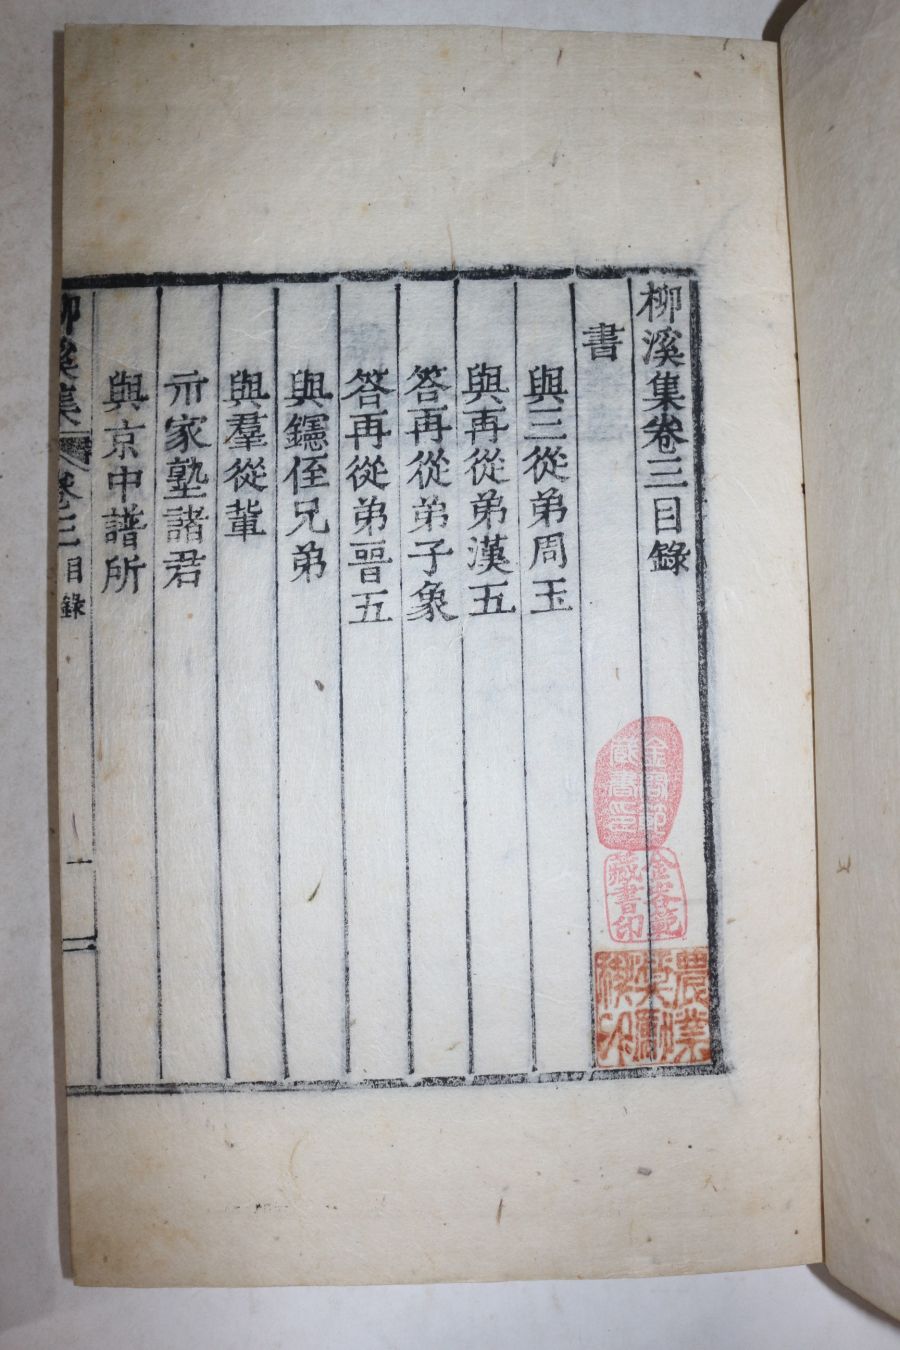 柳溪集卷三目錄
書
與三從弟周玉
與再從弟漢五
答再從弟子象
答再從弟晉五
與鑪侄兄弟
與羣從輩
示家塾諸君
與京中譜所
柳溪集
卷三
目錄
一
藏書印